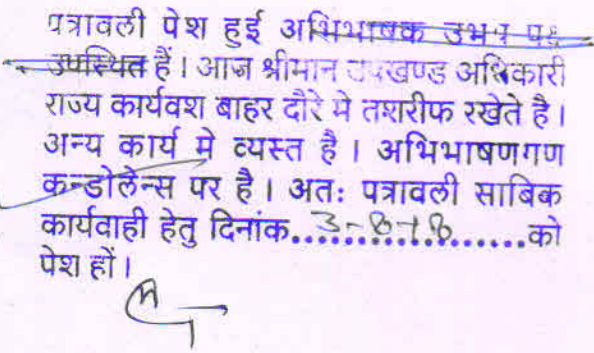 पत्रावली पेश हुई अभिभाषक उभय पक्ष
उपस्थित हैं। आज श्रीमान उपखण्ड अधिकारी
राज्य कार्यवश बाहर दौरे मे तशरीफ रखेते है।
अन्य कार्य मे व्यस्त है। अभिभाषणगण
कन्डोलेन्स पर है। अतः पत्रावली साबिक
कार्यवाही हेतु दिनांक...3-8-18......को
पेश हों।